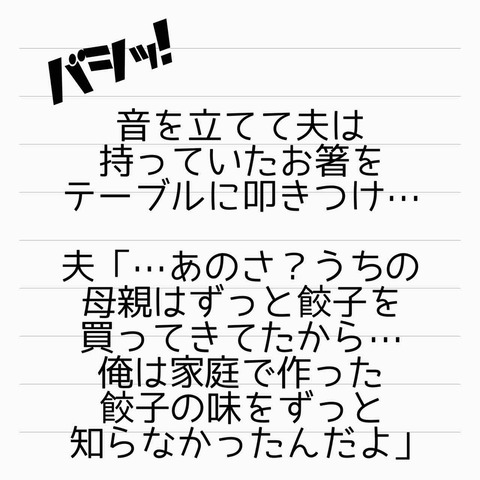 バシッ!
音を立てて夫は
持っていたお箸を
テーブルに叩きつけ…
夫「…あのさ?うちの
母親はずっと餃子を
買ってきてたから…
俺は家庭で作った
餃子の味をずっと
知らなかったんだよ」